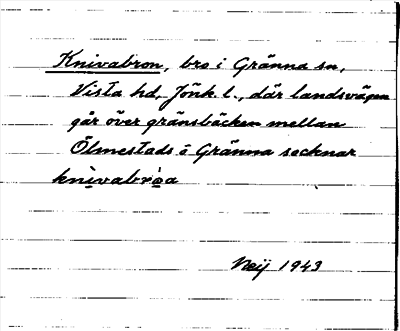 Knivabron, bro i Gränna sn,
Vista hd, Jönk. l., där landsvägen
går över gränsbäcken mellan
Ölmestads o Gränna socknar
knìvabròa
Neij 1943